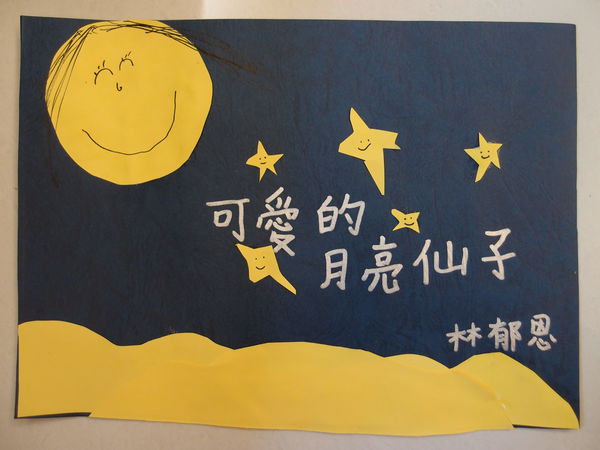 可愛的
月亮仙子
林郁恩